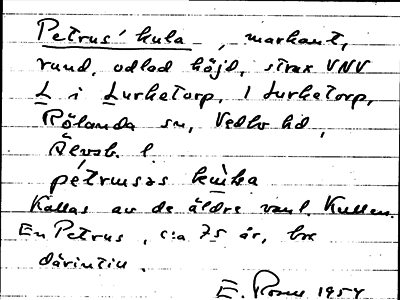 Petrus' kula, markant,
rund, odlad höjd, strax VNV
L i Lurketorp, 1 Lurketorp,
Rölanda sn, Vedbo hd,
Älvsb. l.
pétrusəs
Kallas av de äldre vanl. Kullen.
En Petrus, c:a 75 år, bor
därintill.
1954